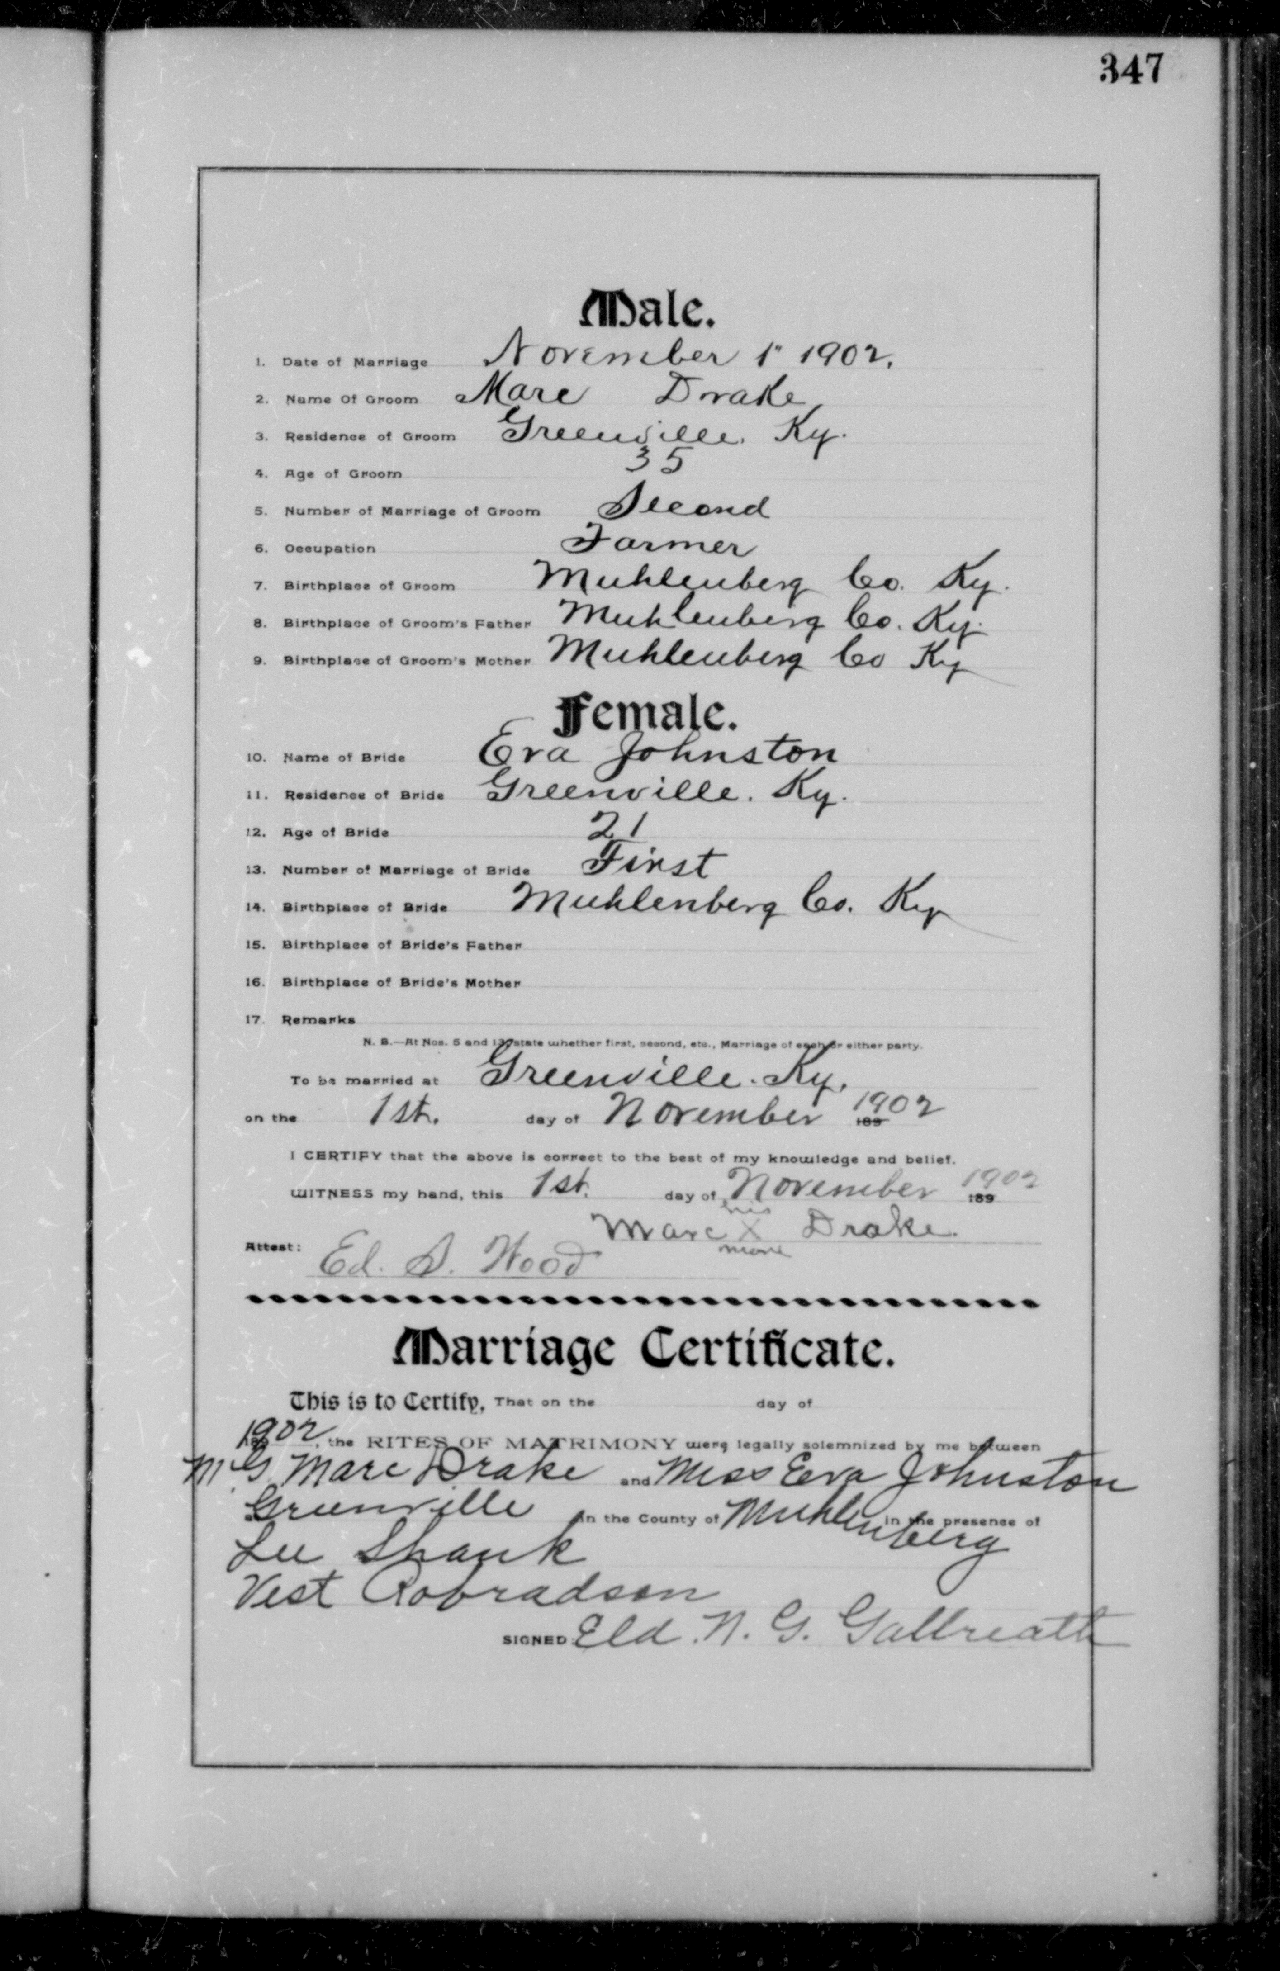 347
Male.
1. Date of Marriage November 1" 1902.
2. Name Of Groom Marc Drake
3. Residence of Groom Greenville, Ky.
4. Age of Groom 35
5. Number of Marriage of Groom Second
6. Occupation Farmer
7. Birthplace of Groom Muhlenberg Co. Ky.
8. Birthplace of Groom's Father Muhlenberg Co. Ky.
9. Birthplace of Groom's Mother Muhlenberg Co Ky
Female.
10. Name of Bride Eva Johnston
11. Residence of Bride Greenville. Ky.
12. Age of Bride 21
13. Number of Marriage of Bride First
14. Birthplace of Bride Muhlenberg Co. Ky
15. Birthplace of Bride's Father
16. Birthplace of Bride's Mother
17. Remarks
N. B.—At Nos. 5 and 13 state whether first, second, etc., Marriage of each or either party.
To be married at Greenville. Ky.
on the 1st. day of November 189 1902
I CERTIFY that the above is correct to the best of my knowledge and belief.
WITNESS my hand, this 1st. day of November 189 1902
his
Marc X Drake.
mark
Attest: Ed. S. Wood
Marriage Certificate.
This is to Certify, That on the day of
1902, the RITES OF MATRIMONY were legally solemnized by me between
Mr G Marc Drake and Miss Eva Johnston
Greenville in the County of Muhlenberg in the presence of
Lee Shank
Vest
SIGNED Eld. N. G. Gallreath